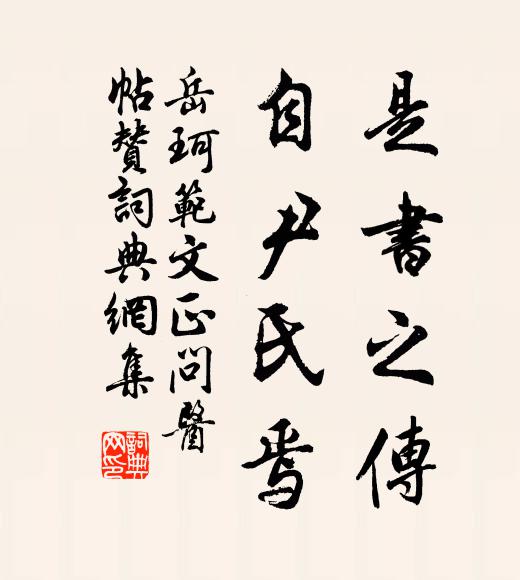 是書之傳
自尹氏焉
岳珂範文正問醫
帖贊詞典網集
詞典网印